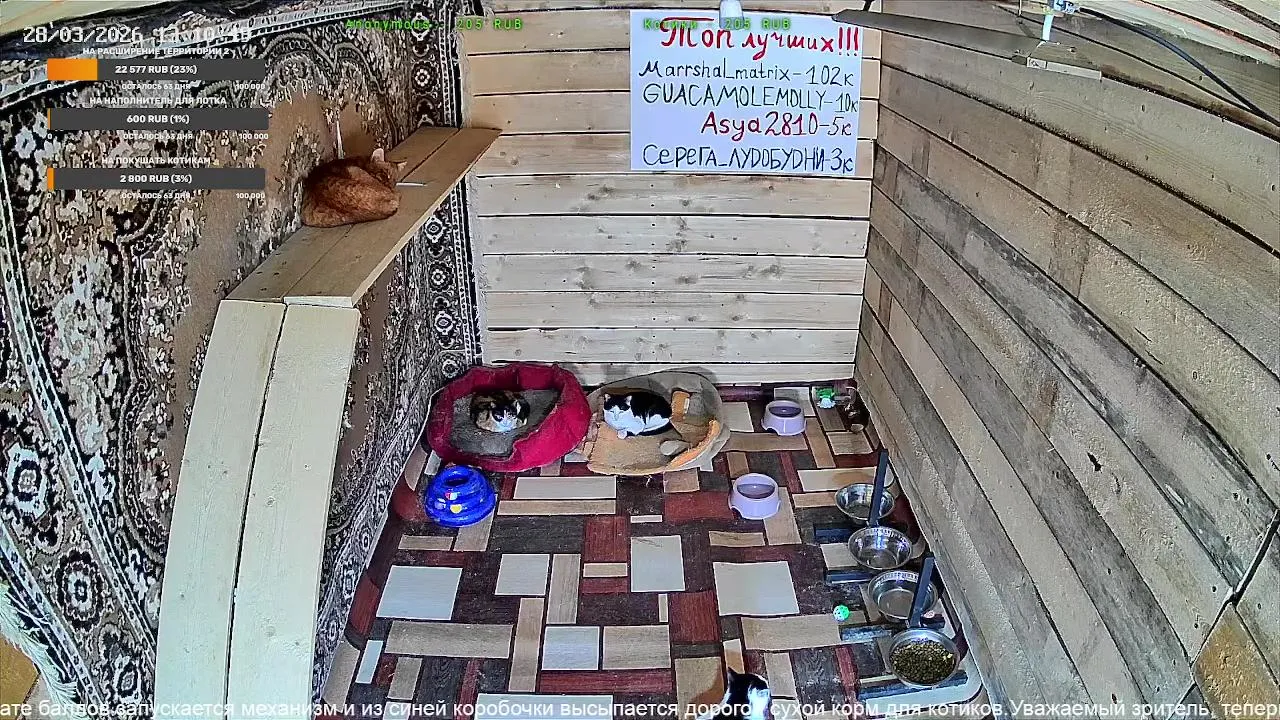 Anonymous - 205 RUB
28/03/2026
НА РАСШИРЕНИЕ ТЕРРИТОРИИ 2
22 577 RUB (23%)
0 ОСТАЛОСЬ 63 ДНЯ 100 000
НА НАПОЛНИТЕЛЬ ДЛЯ ЛОТКА
600 RUB (1%)
0 ОСТАЛОСЬ 63 ДНЯ 100 000
НА ПОКУШАТЬ КОТИКАМ
2 800 RUB (3%)
0 ОСТАЛОСЬ 63 ДНЯ 100 000
205 RUB
Топ лучших!!!
Marrshal_matrix-102к
GUACAMOLEMOLLY-10к
Asya2810-5к
Серега_ЛУДОБУДНИ-3к
ате баллов запускается механизм и из синей коробочки высыпается дорогой сухой корм для котиков.Уважаемый зритель, тепер